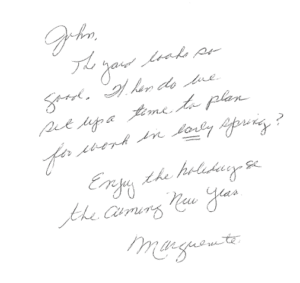 John,
The yard looks so
good. When do we
set up a time to plan
for work in early spring?
Enjoy the holidays &
the coming New Year
Marguerite